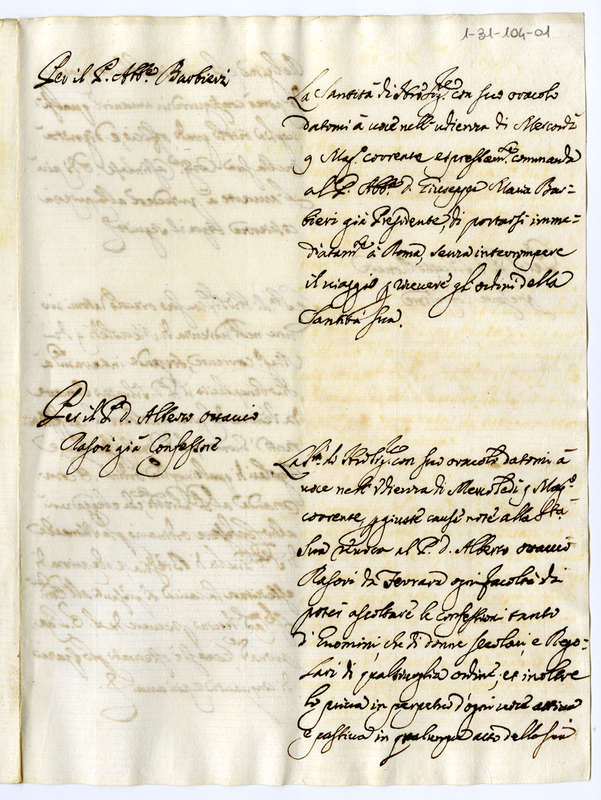 1-31-104-01
Per il P. Abb.e Barbieri
La Santità di N.ro Sig.re con suo oracolo
datomi à voce nell'udienza di Mercordì
9 Mag.o corrente espressam.te commanda
al P. Abb.e d. Giuseppe Maria Bar-
bieri già Presidente, di portarsi imme-
diatam.te à Roma, senza interrompere
il viaggio p ricevere gl'ordini della
Santità Sua.
Per il P. d. Alberto Ottavio
Rasori già Confessore
La S.tà di N.ro Sig.re con suo oracolo datomi à
voce nell'Udienza di Mercoledì 9 Mag.o
corrente, p giuste cause note alla S.tà
Sua revoca al P. d. Alberto Ottavio
Rasori da Ferrara ogni facoltà di
poter ascoltare le Confessioni tanto
d'Huomini, che di donne secolari, e Rego-
lari di qualsivoglia ordine, et inoltre
lo priva in perpetuo d'ogni voce attiva
e passiva in qualunque atto della sua